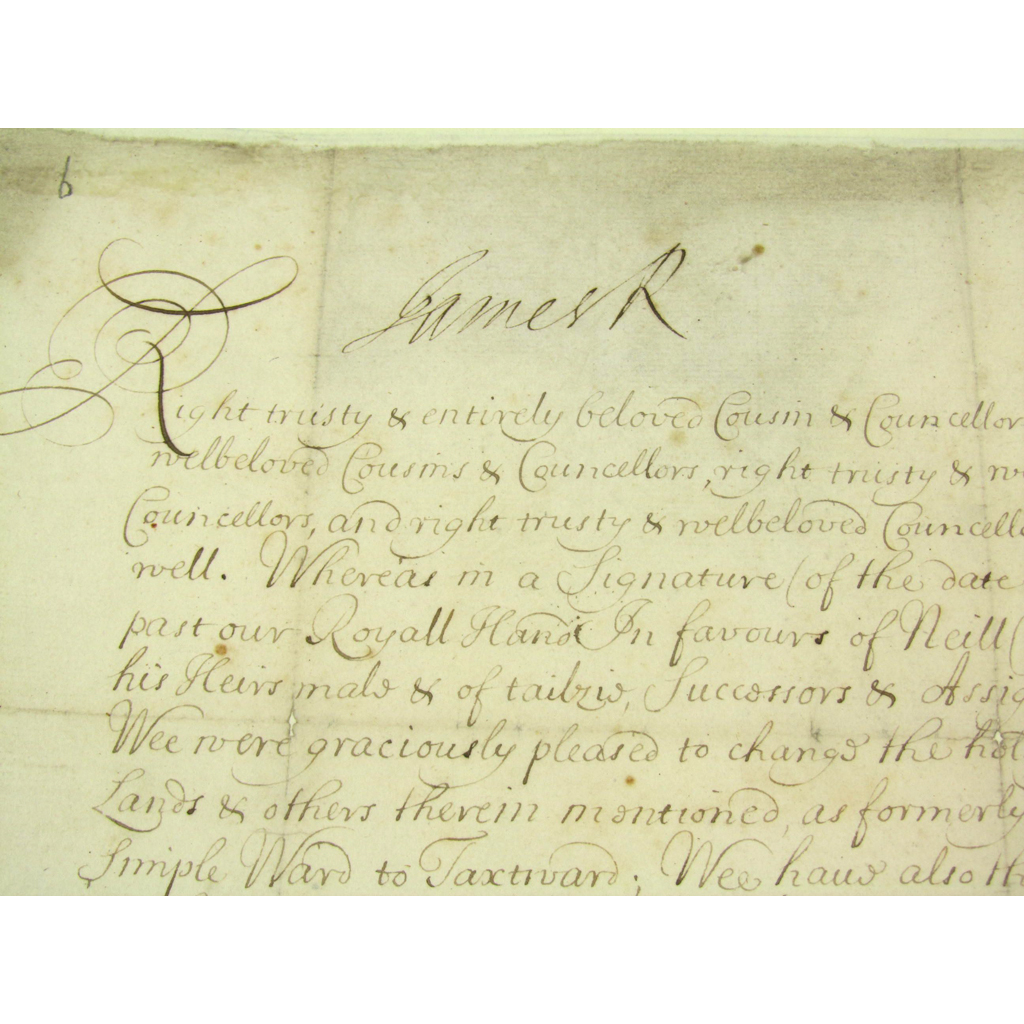 6
James R
Right trusty & entirely beloved Cousin & Councellor
welbeloved Cousins & Councellors, right trusty & w
Councellors, and right trusty & welbeloved Councello
well. Whereas in a Signature (of the date
past our Royall Hand In favours of Neill (
his Heirs male & of tailzie, Successors & Assig
Wee were graciously pleased to change the hol
Lands & others therein mentioned, as formerly
Simple Ward to Taxtward; Wee have also th